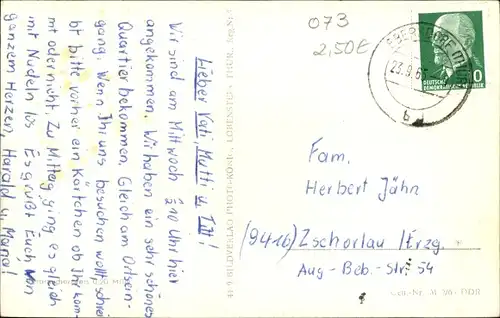 073
2,50€
Lieber Vati, Mutti u. Tilli!
Wir sind am Mittwoch ½10 Uhr hier
angekommen. Wir haben ein sehr schönes
Quartier bekommen. Gleich am Ortsein-
gang. Wenn Ihr uns besuchen wollt, schrei-
bt bitte vorher ein Kärtchen ob Ihr kom-
mt oder nicht. Zu Mittag ging es gleich
mit Nudeln los. Es grüßt Euch von
ganzem Herzen, Harald u.
BILD-VERLAG PHOTO-KÖHL
THÜR.
EBERSDORF (THÜR)
23.9.65
b
DEUTSCHE
DEMOKRATISCHE REPUBLIK
10
Fam.
Herbert Jähn
(9416) Zschorlau /Erzg.
Aug.-Beb.-Str. 54
DDR